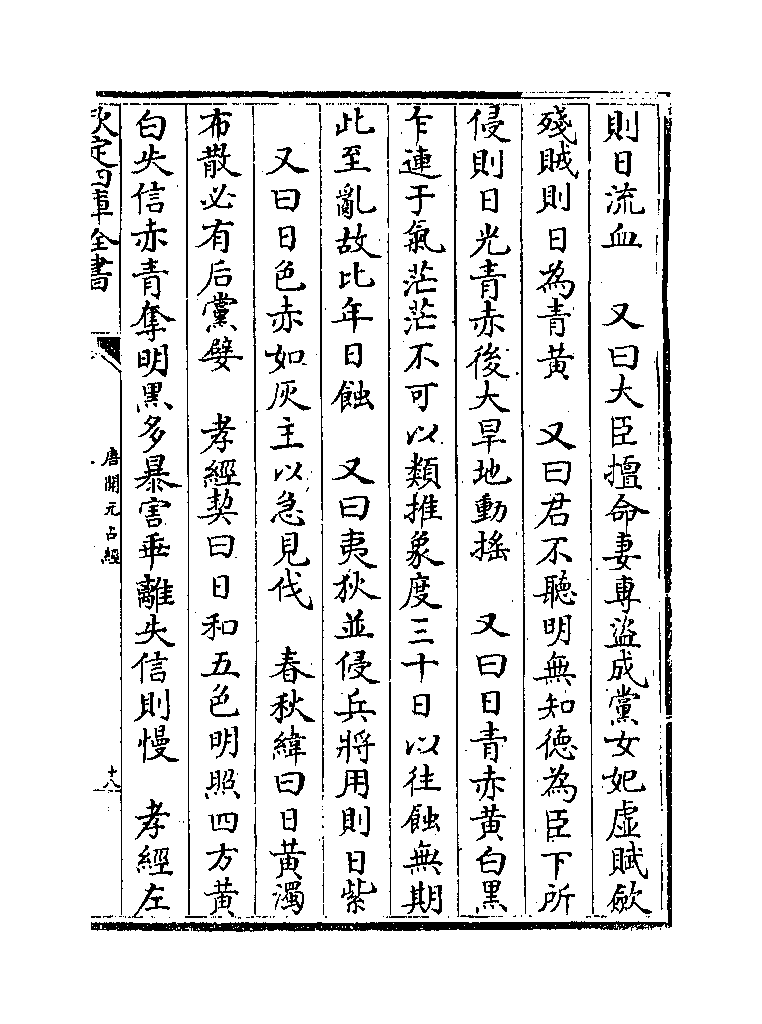 則日流血　又曰大臣擅命妻專盜成黨女妃虛賦斂
殘賊則日為青黃　又曰君不聽明無知德為臣下所
侵則日光青赤後大旱地動搖　又曰日青赤黃白黑
乍連于氣茫茫不可以類推象度三十日以往蝕無期
此至亂故比年日蝕　又曰夷狄並侵兵將用則日紫
又曰日色赤如灰主以急見伐　春秋緯曰日黃濁
布散必有后黨孽　孝經契曰日和五色明照四方黃
白失信赤青奪明黑多暴害乖離失信則慢　孝經左
欽定四庫全書
唐開元占經
十八